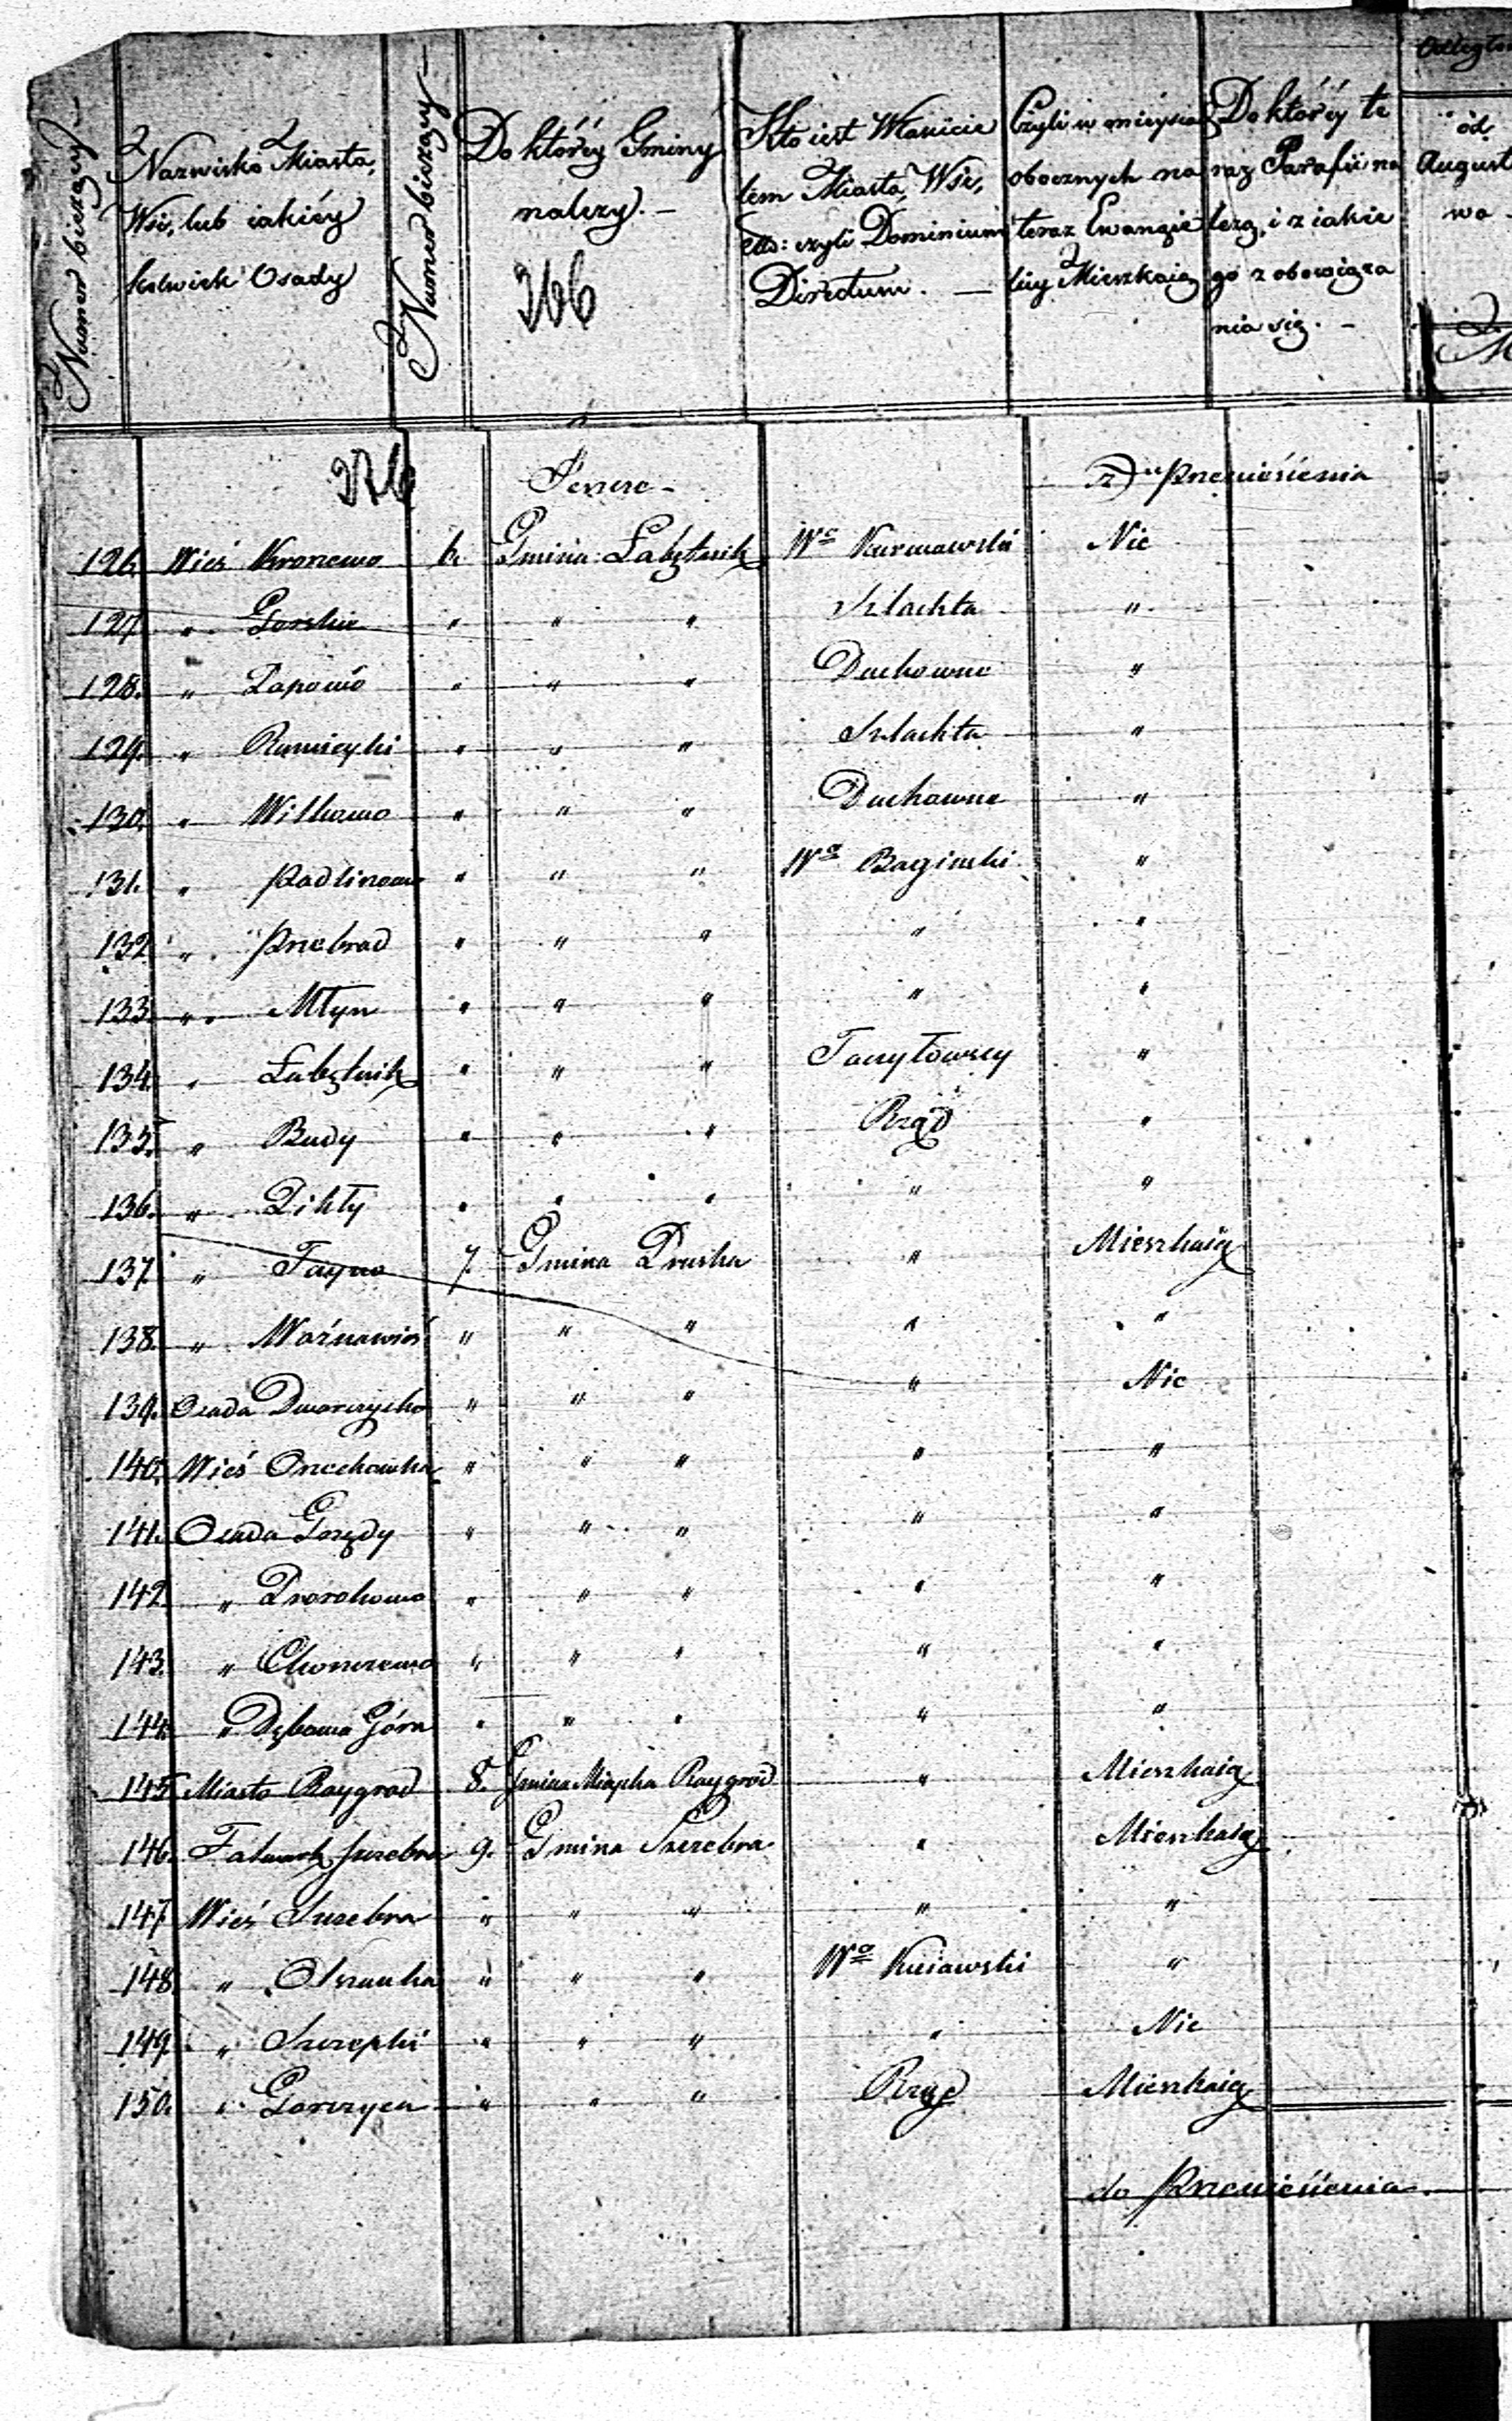 Numer bieżący –
Nazwisko Miasta,
Wsi, lub iakiéy
kolwiek Osady
Numer bieżący –
Do któréy Gminy
należy. –
266
Kto iest Właścicie
lem Miasta, Wsi,
etts: czyli Dominium
Directum. –
Czyli w mieyscach
obocznych na
teraz Ewangie
licy Mieszkaią
Do któréy te
raz Parafii na
leżą, i z iakie
go z obowiąza
nia się. –
Odległo
od
August
wa
M
276
Ieszcze –
Z Przeniesienia
126. Wieś Kronewo 6. Gmina Łabętnik Wo Kurnawski Nie
127. " Gorskie " " " Szlachta "
128. " Papowo " " " Duchowne "
129. " Rumieyki " " " Szlachta "
130. " Wilkowo " " " Duchowne "
131. " Padlinowo " " " Wo Baginski "
132. " Przebrad " " " " "
133. " Młyn " " " " "
134. " Łabętnik " " " Taczyłowscy "
135. " Budy " " " Rząd "
136. " Pikły " " " " "
137. " Tayno 7. Gmina Pruska " Mieszkaią
138. " Woźnawieś " " " " "
139. Osada Dworczysko " " " " Nie
140. Wieś Orzechówka " " " " "
141. Osada Grzędy " " " " "
142. " Prorokowo " " " " "
143. " Choszczewo " " " " "
144. " Dębowa Góra " " " " "
145. Miasto Raygrod 8. Gmina Miayska Raygrod " Mieszkaią
146. Folwark Szczebra 9. Gmina Szczebra " Mieszkaią
147. Wieś Szczebra " " " " "
148. " Olszanka " " " Wo Kuiawski "
149. " Szczepki " " " " Nie
150. " Gorczyca " " " Rząd Mieszkaią
do Przeniesienia